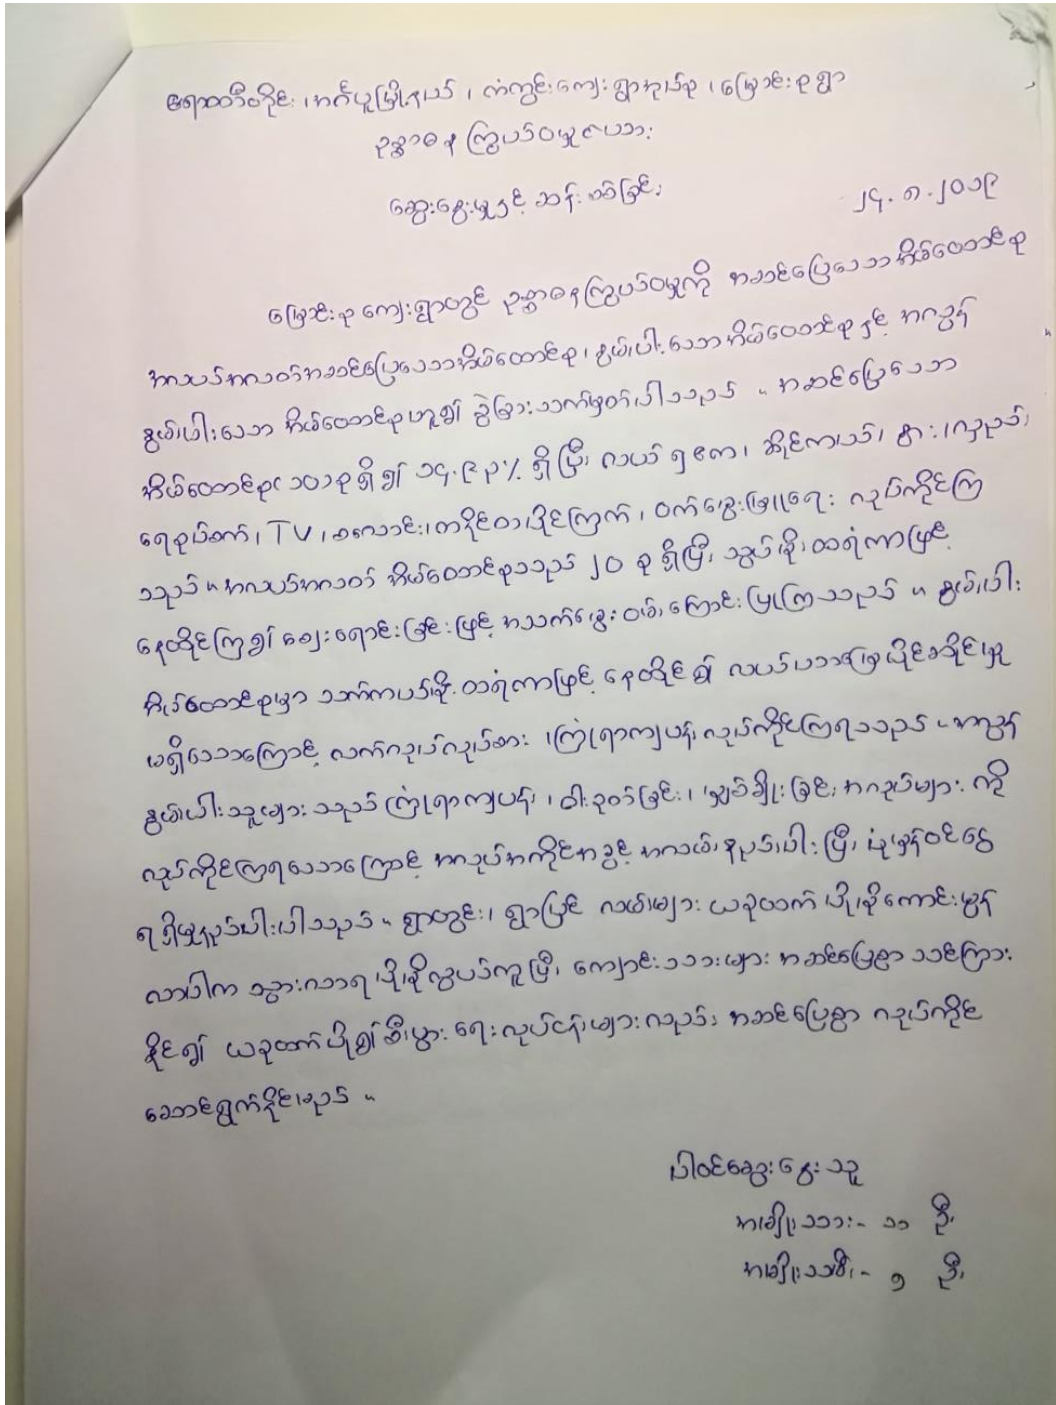 ဧရာဝတီတိုင်း ၊ အင်္ဂပူမြို့နယ် ၊ ကံကွင်းကျေးရွာအုပ်စု ၊ မြောင်းစုရွာ
ဥစ္စာဓန ကြွယ်ဝမှုဇယား
ဆွေးနွေးမှုနှင့် ဆန်းစစ်ခြင်း
၂၄.၈.၂၀၁၉
မြောင်းစု ကျေးရွာတွင် ဥစ္စာဓနကြွယ်ဝမှုကို အဆင်ပြေသောအိမ်ထောင်စု
အလယ်အလတ်အဆင်ပြေသောအိမ်ထောင်စု၊ နွမ်းပါးသောအိမ်ထောင်စုနှင့် အလွန်
နွမ်းပါးသော အိမ်ထောင်စုဟူ၍ ခွဲခြားသတ်မှတ်ပါသည် ။ အဆင်ပြေသော
အိမ်ထောင်စု ၁၀ စုရှိ၍ ၁၄.၉၃% ရှိပြီး လယ် ၅ ဧက ၊ ဆိုင်ကယ်၊ နွား ၊ လှည်း၊
ရေစုပ်စက်၊ TV ၊ စလောင်း၊ တနိုင်တပိုင်ကြက် ၊ ဝက်မွေးမြူရေး လုပ်ကိုင်ကြ
သည် ။ အလယ်အလတ် အိမ်ထောင်စုသည် ၂၀ စု ရှိပြီး သွပ်မိုး ထရံကာဖြင့်
နေထိုင်ကြ၍ ဈေးရောင်းခြင်းဖြင့် အသက်မွေး ဝမ်းကြောင်း ပြုကြသည် ။ နွမ်းပါး
အိမ်ထောင်စုမှာ သက်ကယ်မိုး ထရံကာဖြင့် နေထိုင်၍ လယ်ယာမြေပိုင်ဆိုင်မှု
မရှိသောကြောင့် လက်လုပ်လုပ်စား ၊ ကြုံရာကျပန်း လုပ်ကိုင်ကြရသည် ။ အလွန်
နွမ်းပါးသူများ သည် ကြုံရာကျပန်း ၊ ဝါးခုတ်ခြင်း ၊ မျှစ်ချိုးခြင်း အလုပ်များ ကို
လုပ်ကိုင်ကြရသောကြောင့် အလုပ်အကိုင်အခွင့် အလမ်း နည်းပါးပြီး ပုံမှန်ဝင်ငွေ
ရရှိမှုနည်းပါးပါသည် ။ ရွာတွင်း၊ ရွာပြင် လမ်းများ ယခုထက် ပိုမိုကောင်းမွန်
လာပါက သွားလာရ ပိုမိုလွယ်ကူပြီး ကျောင်းသားများ အဆင်ပြေစွာ သင်ကြား
နိုင်၍ ယခုထက်ပို၍ စီးပွား ရေးလုပ်ငန်းများလည်း အဆင်ပြေစွာ လုပ်ကိုင်
ဆောင်ရွက်နိုင်မည် ။
ပါဝင်ဆွေးနွေးသူ
အမျိုးသား - ၁၁ ဦး
အမျိုးသမီး - ၅ ဦး